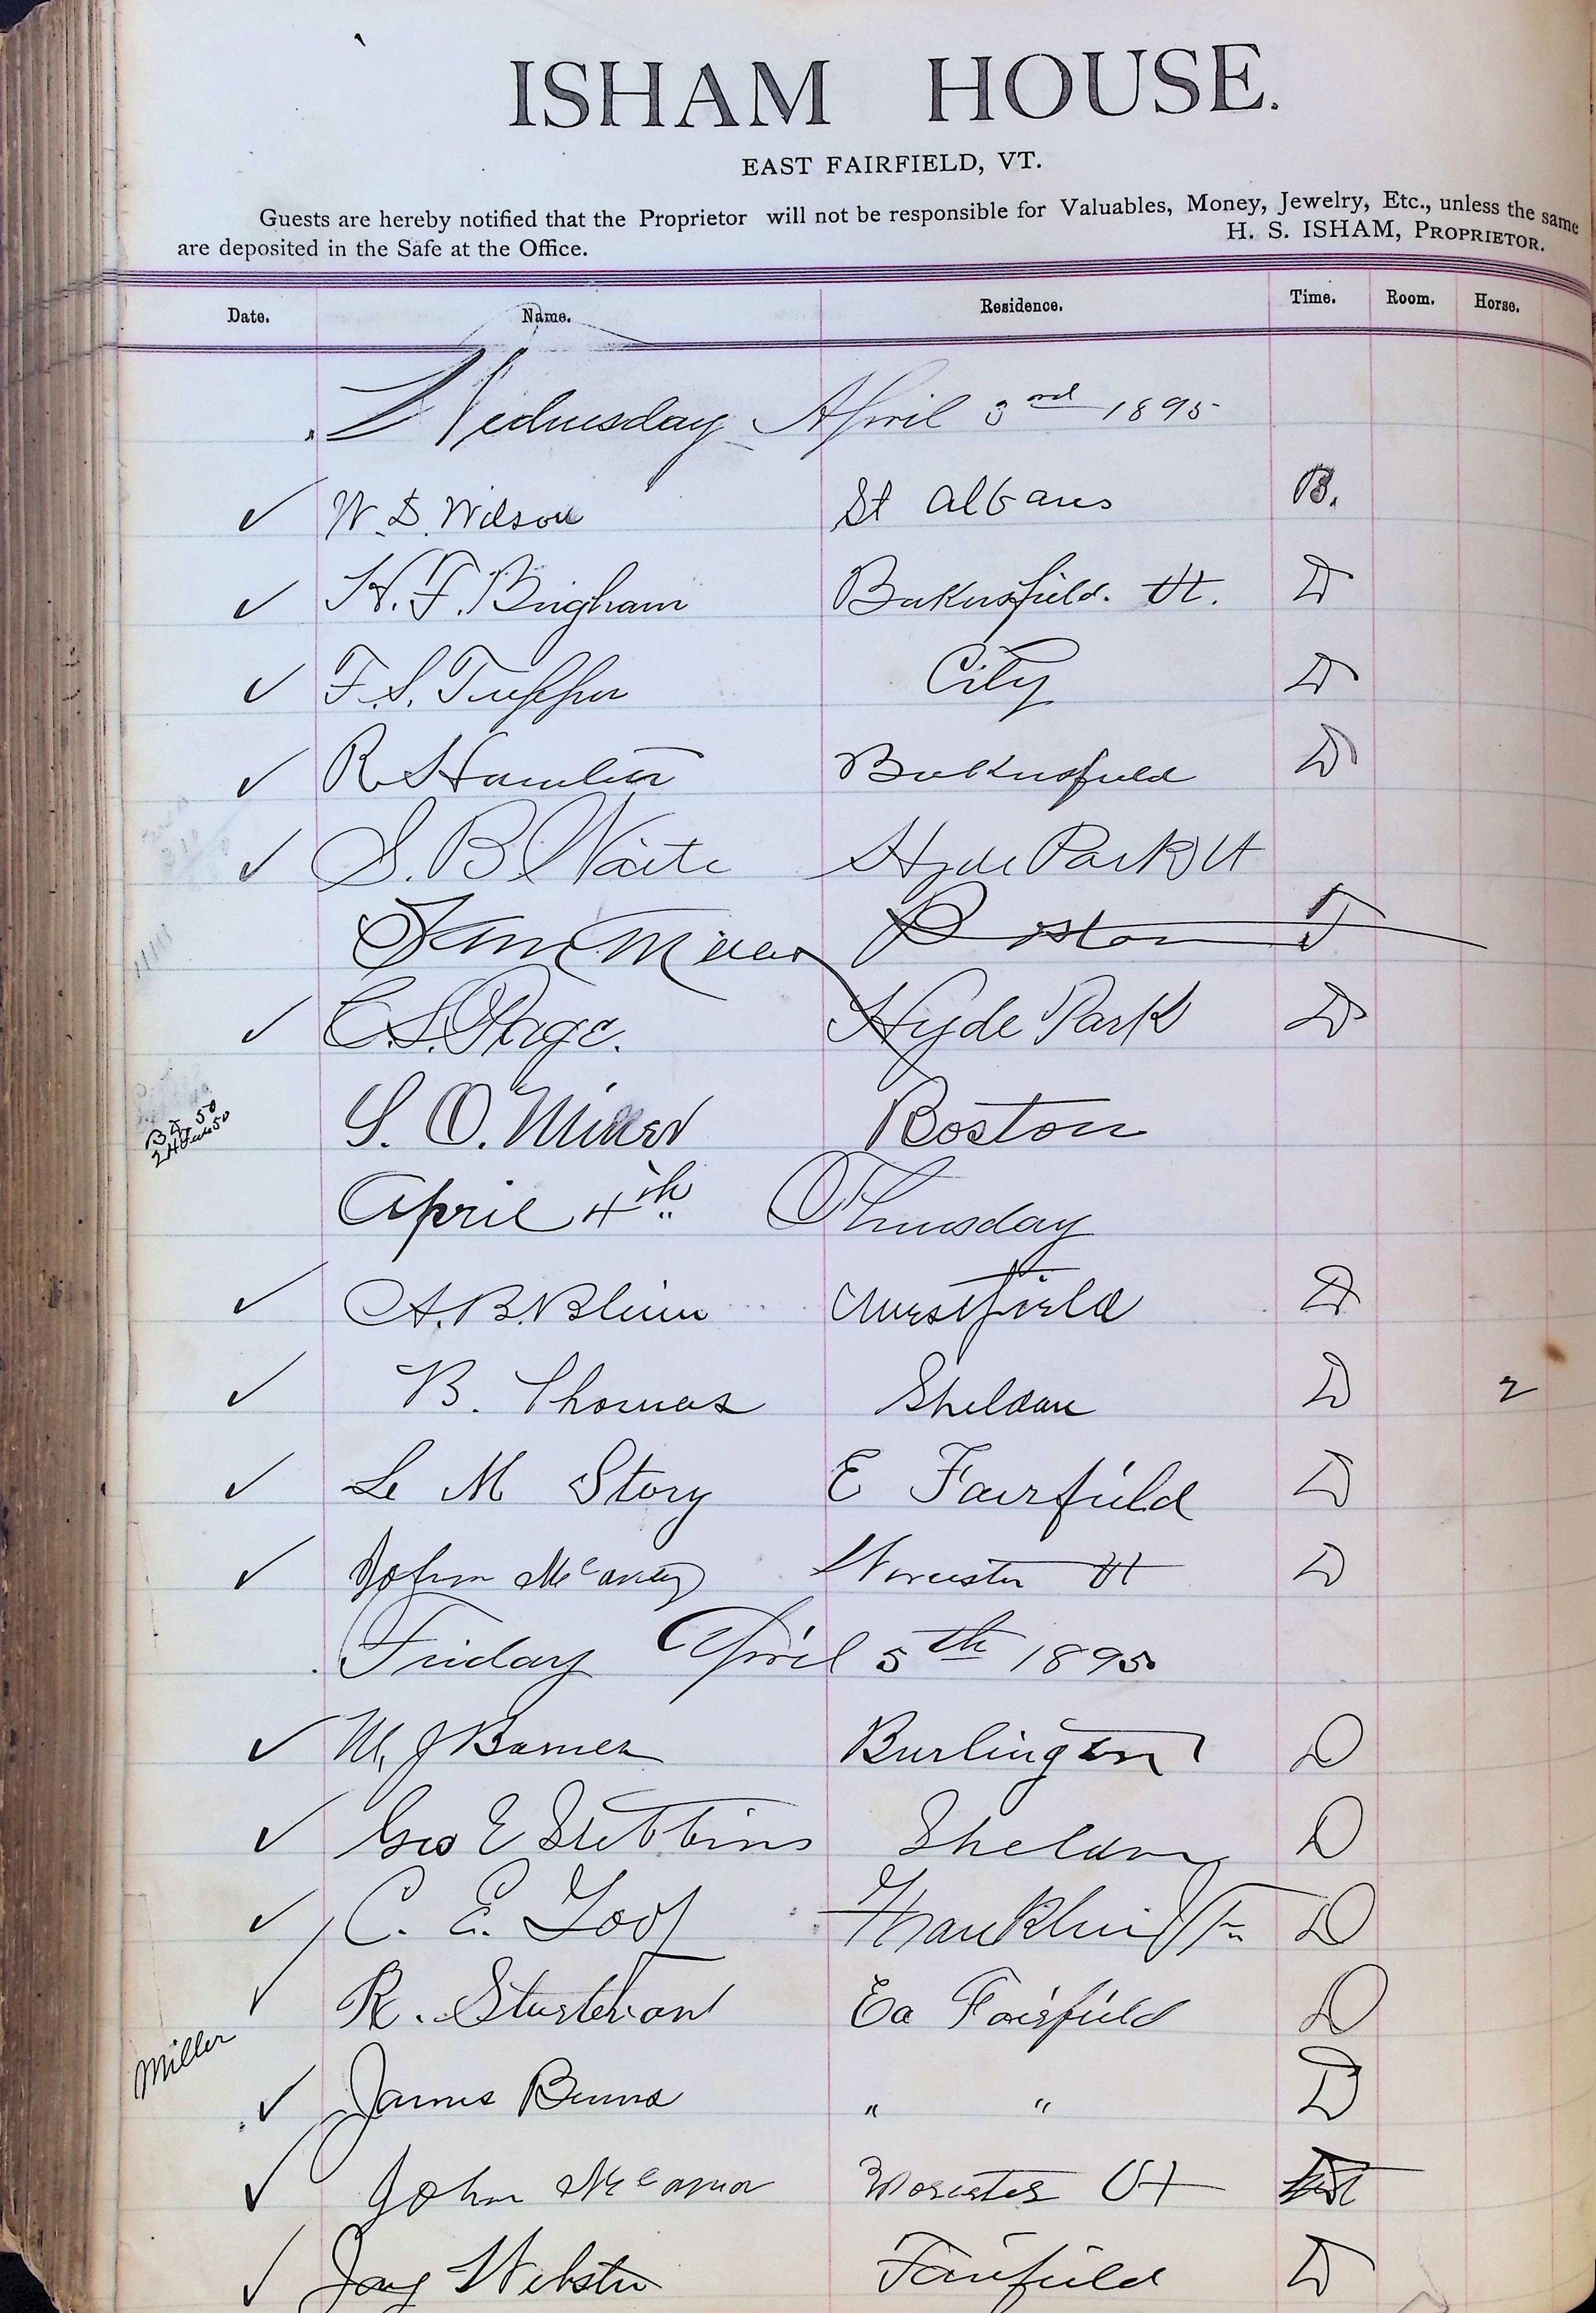 ISHAM HOUSE.
EAST FAIRFIELD, VT.
Guests are hereby notified that the Proprietor will not be responsible for Valuables, Money, Jewelry, Etc., unless the same
are deposited in the Safe at the Office. H. S. ISHAM, PROPRIETOR.
Date. Name. Residence. Time. Room. Horse.
Wednesday April 3rd 1895
W. D. Wilson St Albans B.
H. F. Bingham Bakersfield. Vt. D
F. S. Tupper City D
R Hamilton Bakersfield D
S. B. Waite Hyde Park Vt
Miller Boston
C. S. Page. Hyde Park D
S. O. Miller Boston
April 4th Thursday
A. B. Westfield D
B. Thomas Sheldon D 2
L M Story E Fairfield D
John Worcester Vt D
Friday April 5th 1895
M. J Barnes Burlington D
Geo E Stebbins Sheldon D
C. E. Franklin D
R. Sturtevant Ea Fairfield D
Miller
James Burns " " D
John Worcester Vt
Jay Webster Fairfield D